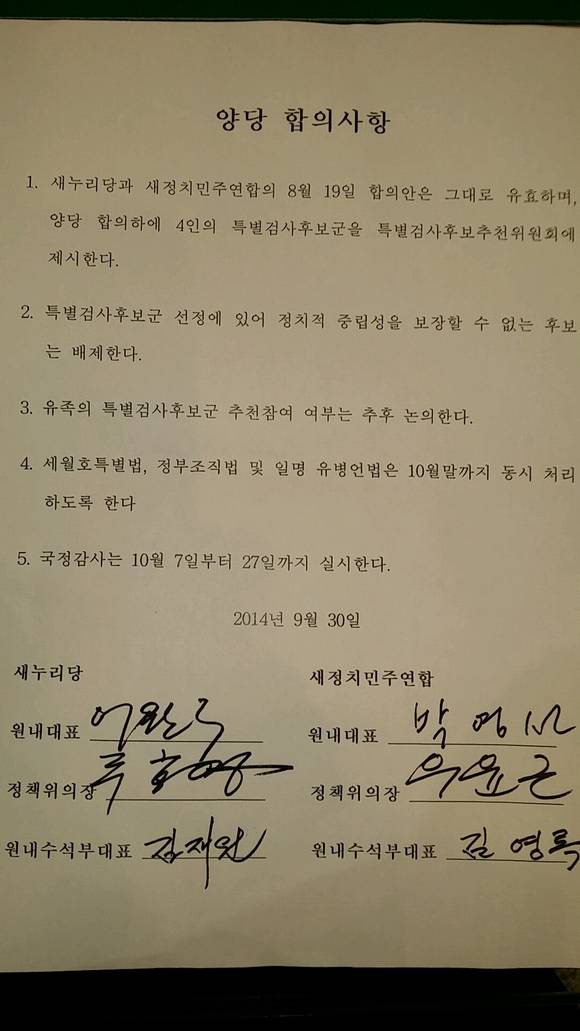 양당 합의사항
1. 새누리당과 새정치민주연합의 8월 19일 합의안은 그대로 유효하며,
양당 합의하에 4인의 특별검사후보군을 특별검사후보추천위원회에
제시한다.
2. 특별검사후보군 선정에 있어 정치적 중립성을 보장할 수 없는 후보
는 배제한다.
3. 유족의 특별검사후보군 추천참여 여부는 추후 논의한다.
4. 세월호특별법, 정부조직법 및 일명 유병언법은 10월말까지 동시 처리
하도록 한다
5. 국정감사는 10월 7일부터 27일까지 실시한다.
2014년 9월 30일
새누리당 새정치민주연합
원내대표 이완구 원내대표 박영선
정책위의장 정책위의장 우윤근
원내수석부대표 김재원 원내수석부대표 김영록